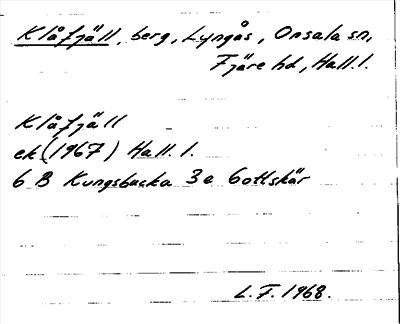 Klåfjäll, berg, Lyngås, Onsala sn,
Fjäre hd, Hall. l.
Klåfjäll
ek (1967) Hall. l.
6 B Kungsbacka 3 e Gottskär
L. F. 1968.